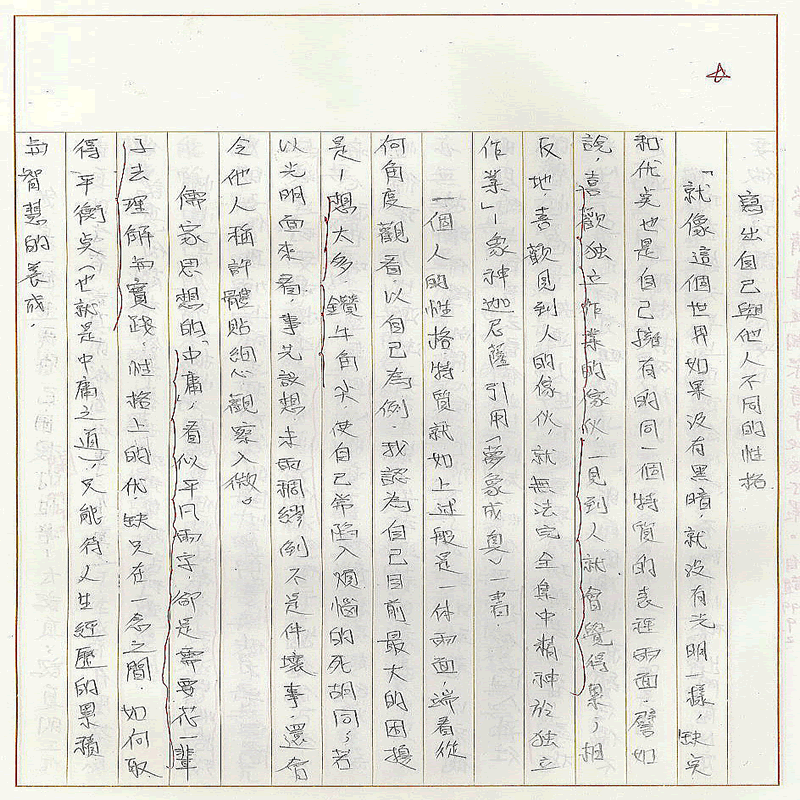 寫出自己與他人不同的性格
「就像這個世界如果沒有黑暗,就沒有光明一樣,缺点
和优点也是自己擁有的同一個特質的表裡兩面,譬如
說,喜歡独立作業的傢伙,一見到人就會覺得累;相
反地喜歡見到人的傢伙,就無法完全集中精神於独立
作業」—象神迦尼薩 引用「夢象成真」一書.
一個人的性格.特質就如上述般是一体兩面,端看從
何角度觀看,以自己為例,我認為自己目前最大的困擾
是—想太多,鑽牛角尖,使自己常陷入煩惱的死胡同;若
以光明面來看,事先設想,未雨稠繆例不是件壞事,還會
令他人稱許體貼細心觀察入微。
儒家思想的「中庸」,看似平凡兩字,卻是需要花一輩
子去理解与實踐,性格上的优缺只在一念之間,如何取
得平衡点(也就是中庸之道),只能待人生經歷的累積
与智慧的養成.